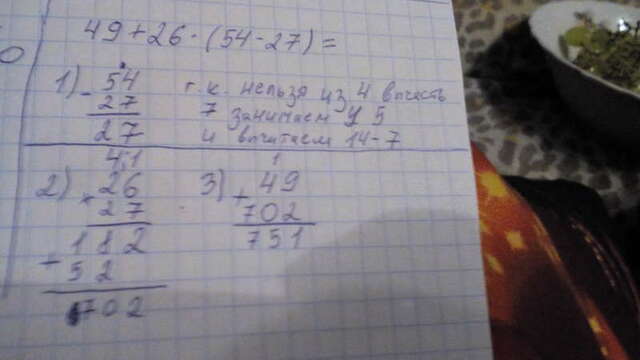 49+26·(54-27)=
1) - 54 т.к. нельзя из 4 вычесть
27 7 занимаем у 5
27 и вычитаем 14-7
4 1 1
2) × 26 3) + 49
27 702
182 751
+ 52
702